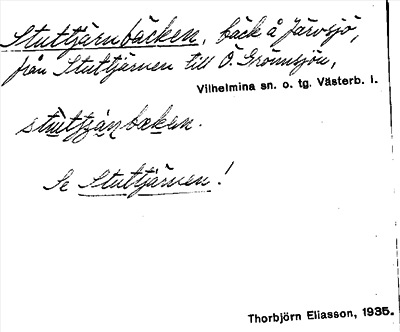 Stuttjärnbäcken, bäck å Järvsjö,
från Stuttjärnen till Ö. Grönnsjön,
Vilhelmina sn. o. tg. Västerb. l.
stuttjänbæken.
Se Stuttjärnen!
Thorbjörn Eliasson, 1935.